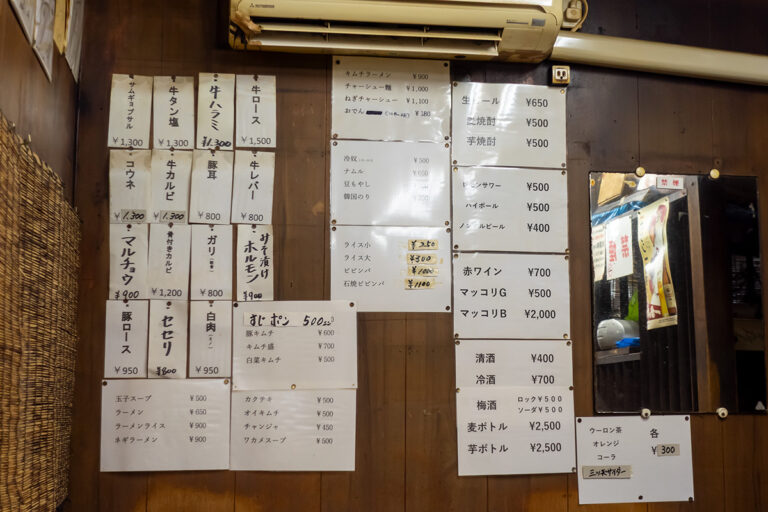 MITSUBISHI
サムギョプサル
¥1,300
牛タン塩
¥1,300
牛ハラミ
¥1,300
牛ロース
¥1,500
コウネ
¥1,300
牛カルビ
¥1,300
豚耳
¥800
牛レバー
¥800
マルチョウ
¥900
骨付きカルビ
¥1,200
ガリ
¥800
みそ漬けホルモン
¥900
豚ロース
¥950
セセリ
¥800
白肉
¥950
キムチラーメン ¥900
チャーシュー麺 ¥1,000
ねぎチャーシュー ¥1,100
おでん ¥180
冷奴 ¥500
ナムル
豆もやし
韓国のり
ライス小 ¥250
ライス大 ¥300
ビビンバ ¥1000
石焼ビビンバ ¥1100
すじポン 500
豚キムチ ¥600
キムチ盛 ¥700
白菜キムチ ¥500
玉子スープ ¥500
ラーメン ¥650
ラーメンライス ¥900
ネギラーメン ¥900
カクテキ ¥500
オイキムチ ¥500
チャンジャ ¥450
ワカメスープ ¥500
生ビール ¥650
焼酎 ¥500
芋焼酎 ¥500
サワー ¥500
ハイボール ¥500
ノンアルビール ¥400
赤ワイン ¥700
マッコリG ¥500
マッコリB ¥2,000
清酒 ¥400
冷酒 ¥700
梅酒 ロック¥500
ソーダ¥500
麦ボトル ¥2,500
芋ボトル ¥2,500
禁煙
ウーロン茶 各
オレンジ ¥300
コーラ
三ツ矢サイダー